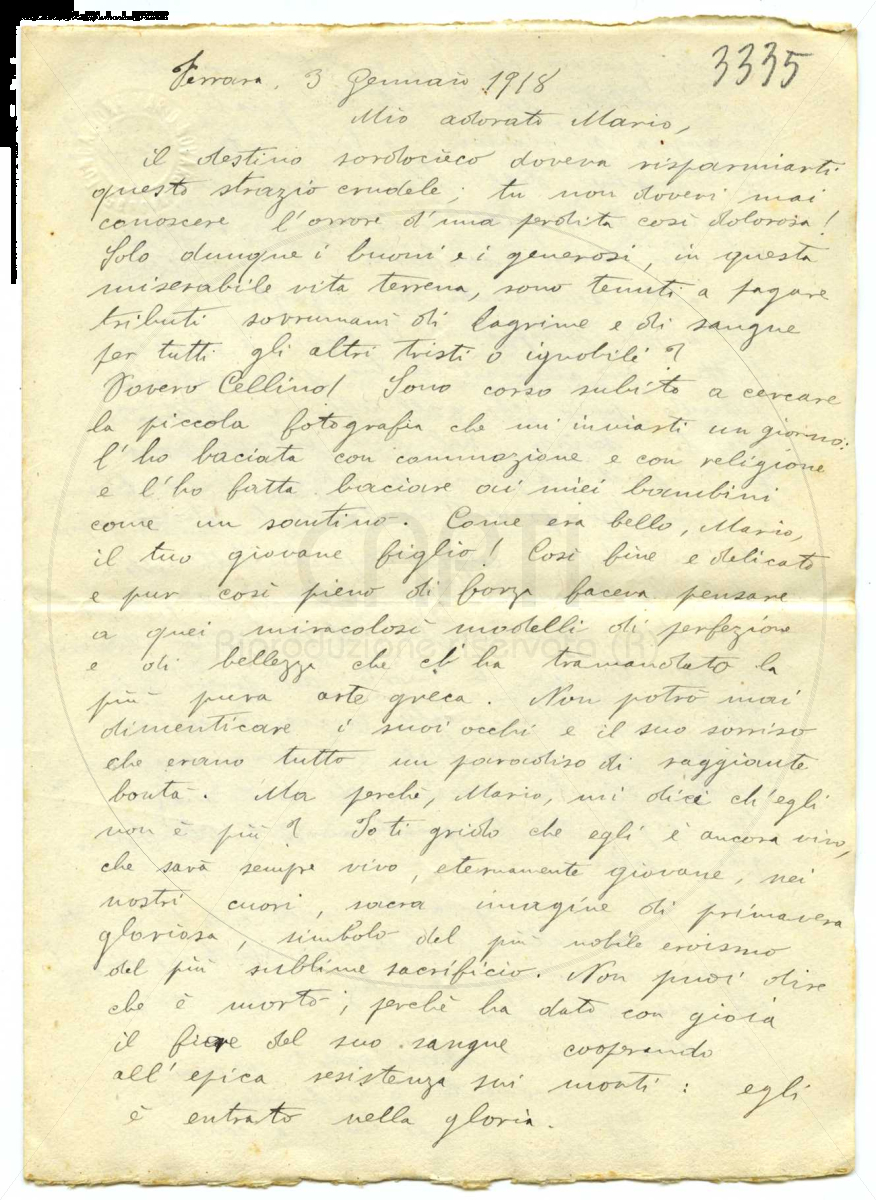 3335
Ferrara, 3 Gennaio 1918
Mio adorato Mario,
il destino sordocieco doveva risparmiarti
questo strazio crudele; tu non dovevi mai
conoscere l'orrore d'una perdita così dolorosa!
Solo dunque i buoni e i generosi, in questa
miserabile vita terrena, sono tenuti a pagare
tributi sovrumani di lagrime e di sangue
per tutti gli altri tristi o ignobili?
Povero Cellino! Sono corso subito a cercare
la piccola fotografia che mi inviasti un giorno:
l'ho baciata con commozione e con religione
e l'ho fatta baciare ai miei bambini
come un santino. Come era bello, Mario,
il tuo giovane figlio! Così fine e delicato
e pur così pieno di forza faceva pensare
a quei miracolosi modelli di perfezione
e di bellezza che ci ha tramandato la
più pura arte greca. Non potrò mai
dimenticare i suoi occhi e il suo sorriso
che erano tutto un paradiso di raggiante
bontà. Ma perchè, Mario, mi dici ch'egli
non è più? Io ti grido che egli è ancora vivo,
che sarà sempre vivo, eternamente giovane, nei
nostri cuori, sacra immagine di primavera
gloriosa, simbolo del più nobile eroismo
del più sublime sacrificio. Non puoi dire
che è morto; perchè ha dato con gioia
il fiore del suo sangue cooperando
all'epica resistenza sui monti: egli
è entrato nella gloria.